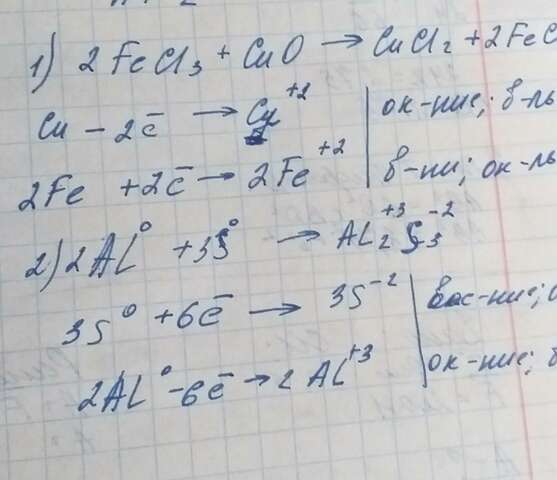 1) 2FeCl₃ + CuO → CuCl₂ + 2FeC
Cu - 2ē → Cu⁺² | ок-ние; в-ль
2Fe + 2ē → 2Fe⁺² | в-ни; ок-ль
2) 2Al⁰ + 3S⁰ → Al₂⁺³S₃⁻²
3S⁰ + 6ē → 3S⁻² | вос-ние;
2Al⁰ - 6ē → 2Al⁺³ | ок-ние; в